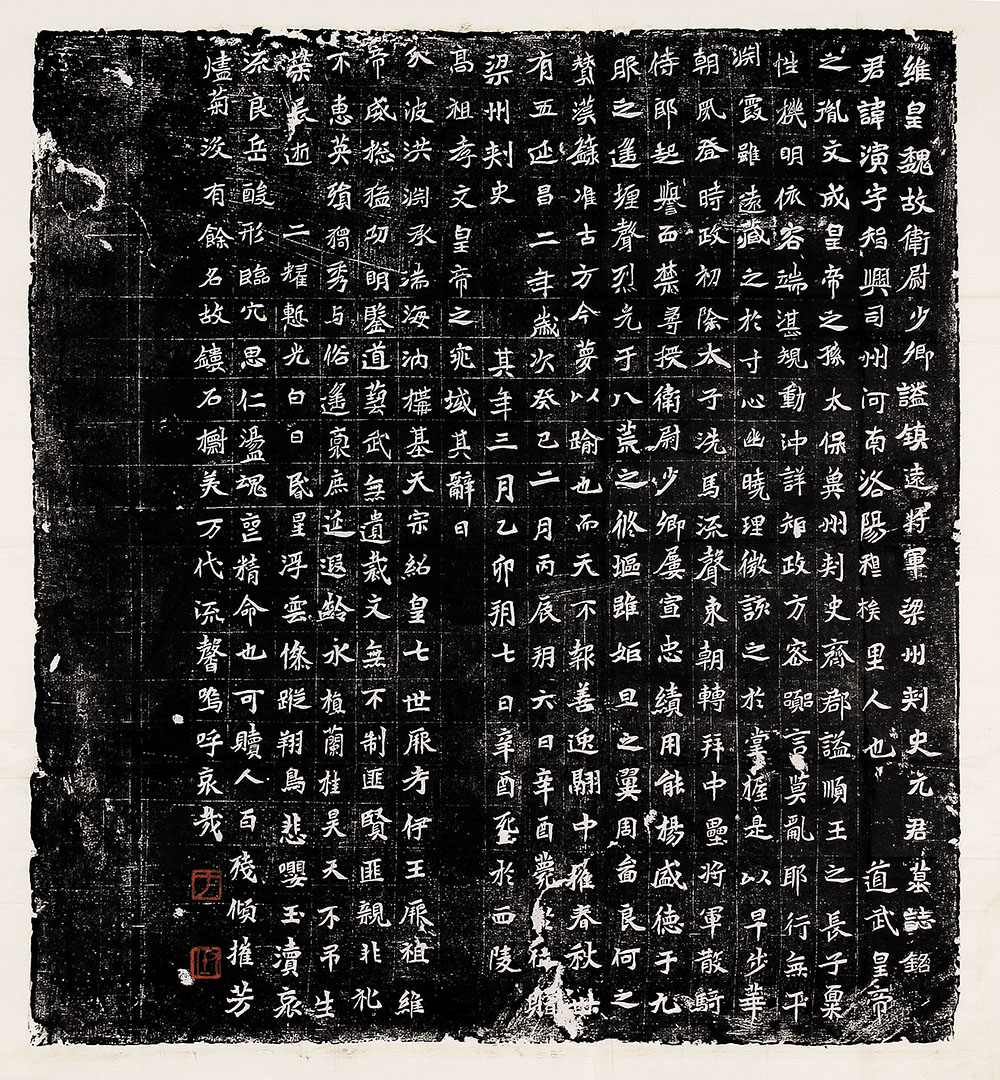 維皇魏故衛尉少卿謚鎮遠將軍梁州刾史元君墓誌銘
君諱演字智興司州河南洛陽穆族里人也 道武皇帝
之胤文成皇帝之孫太保冀州刾史齊郡謚順王之長子稟
性機明依容端湛規動沖詳矩政方容□言莫亂耶行無平
渊霞雖遠藏之於寸心幽曉理微該之於掌握是以早步華
朝夙登時政初除太子洗馬流聲東朝轉拜中壘將軍散騎
侍郎起譽西禁尋授衛尉少卿屢宣忠績用能揚盛德于九
服之遙㙻聲烈光于八荒之脩塸雖姬旦之翼周畣良何之
贊漢籙准古方今蔑以踰也而天不報善逸翮中摧春秋丗
有五延昌二年歲次癸巳二月丙辰朔六日辛酉薨於□賵
梁州刾史 其年三月乙卯朔七日辛酉窆於西陵
高祖孝文皇帝之兆域其辭曰
氶波洪渊承湍海汭構基天宗紹皇七世厥考伊王厥祖維
帝咸揔猛功明鑒道藝武無遺裁文無不制匪賢匪親非礼
不惠英殞獨秀与俗遙禀庶延遐齡永植蘭桂昊天不吊生
榮長逝 二耀慙光白日昏星浮雲倏蹤翔鳥悲嚶玉瀆哀
流良岳酸形臨穴思仁盪魂喪精命也可贖人百殘傾摧芳
燼菊沒有餘名故鐫石櫥美万代流馨嗚呼哀哉